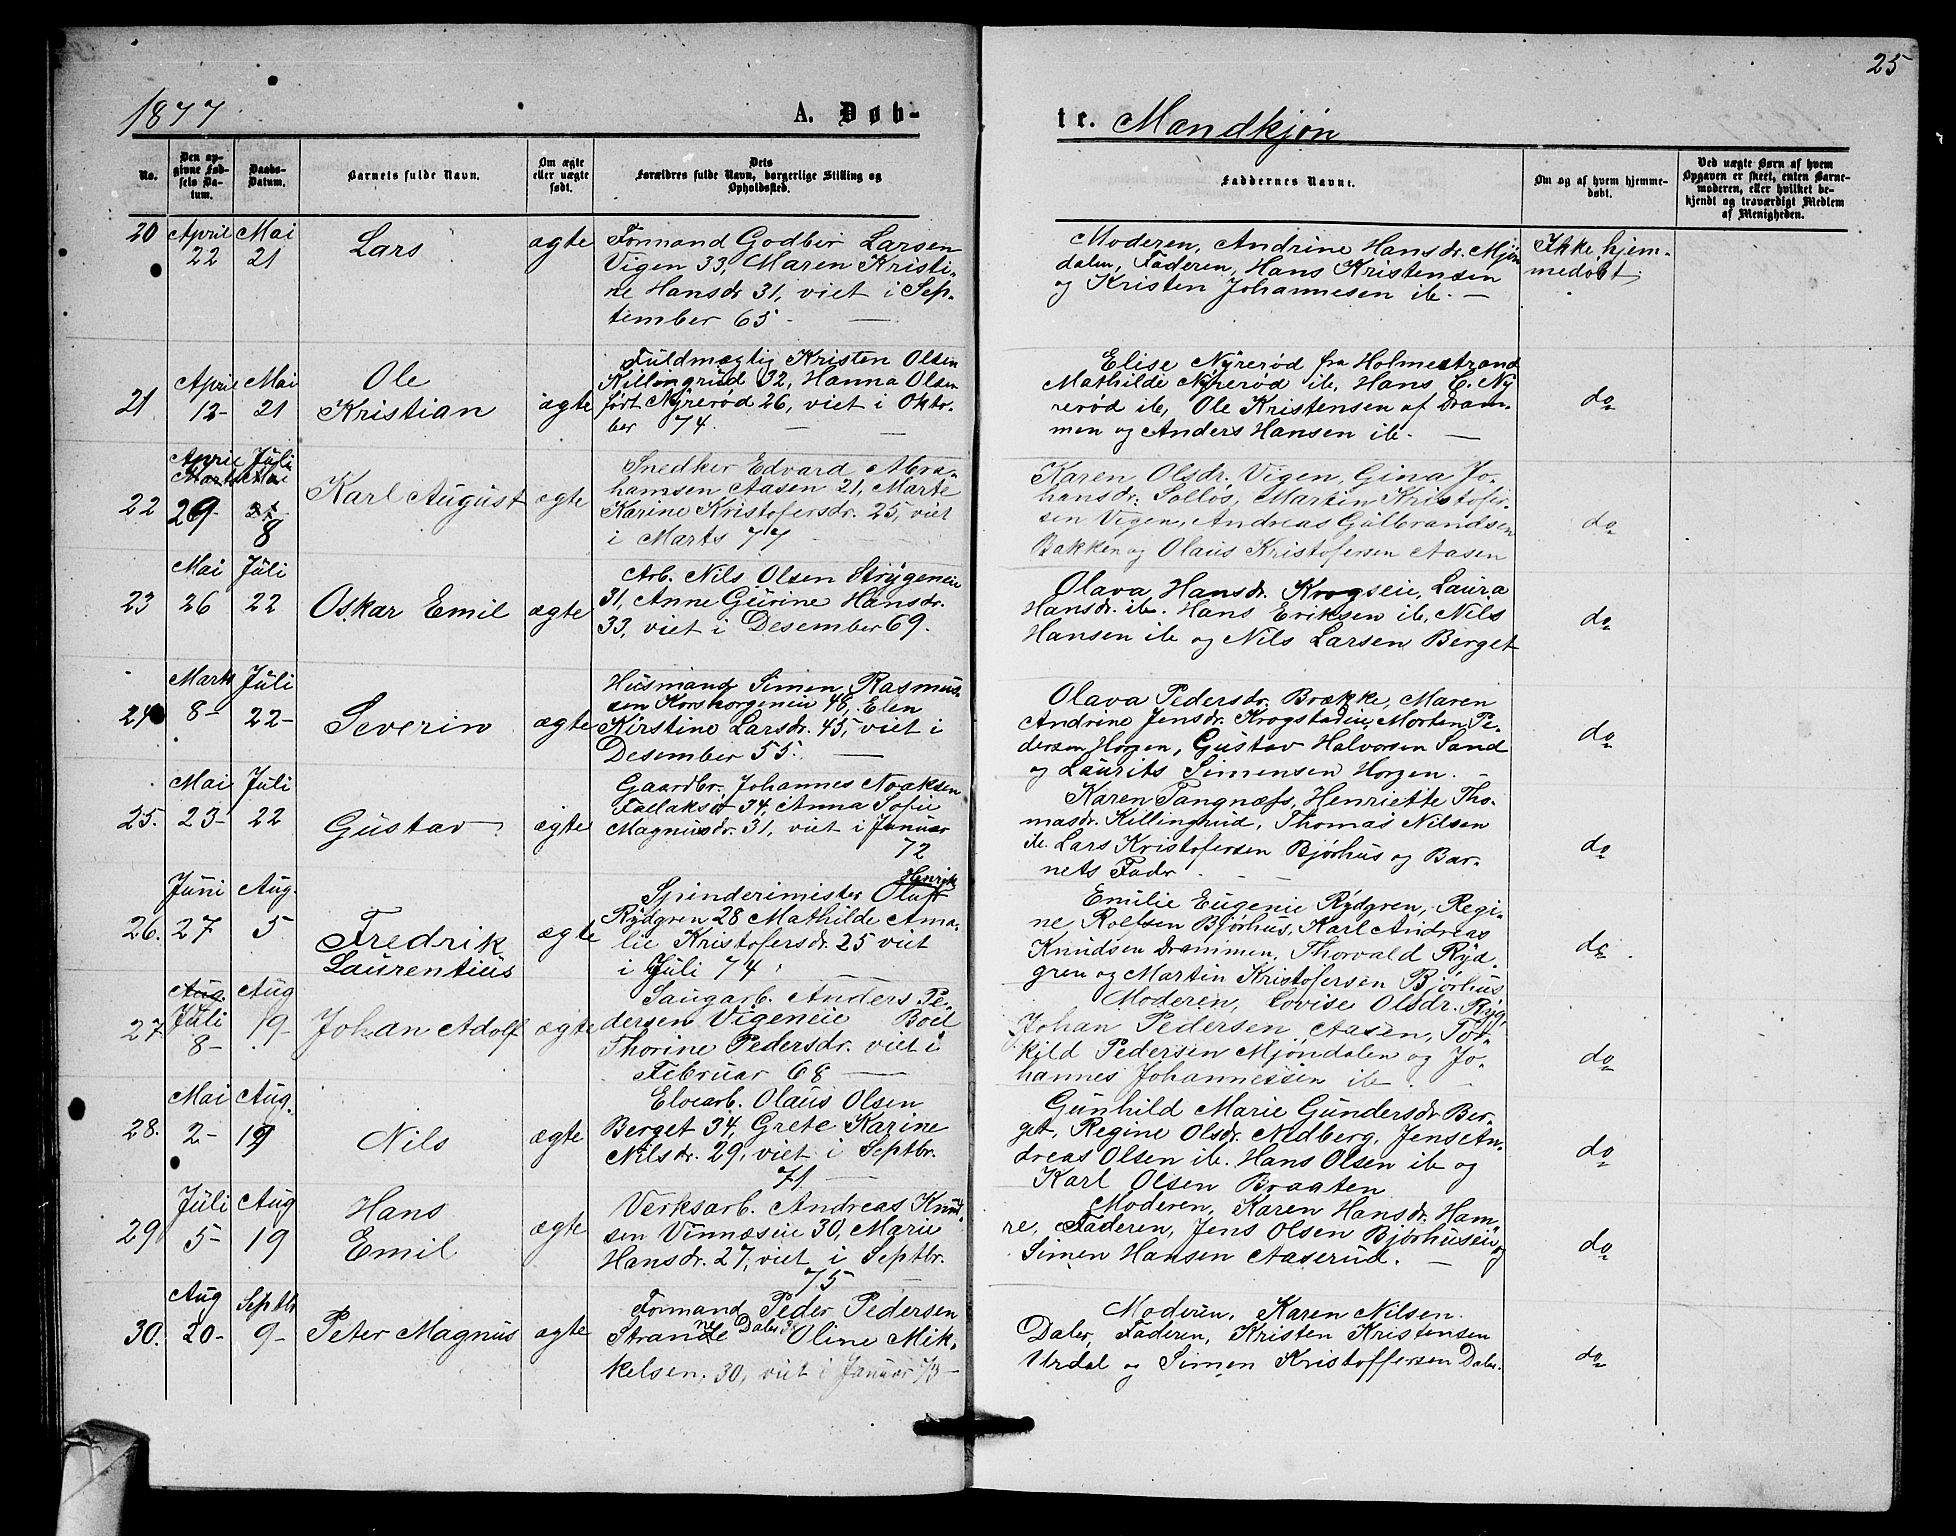 25
1877
A. Døb-
te. Mandkjøn
No.
Den op-
givne Fød-
sels Da-
tum.
Daabs-
Datum.
Barnets fulde Navn.
Om ægte
eller uægte
født.
Dets
Forældres fulde Navn, borgerlige Stilling og
Opholdssted.
Faddernes Navne.
Om og af hvem hjemme-
døbt.
Ved uægte Børn af hvem
Opgaven er skeet, enten Barne-
moderen, eller hvilket be-
kjendt og troværdigt Medlem
af Menigheden.
20
April
22
Mai
21
Lars
ægte
Formand Godbir Larsen
Vigen 33, Maren Kristi-
ne Hansdr 31, viet i Sep-
tember 65
Moderen, Andrine Hansdr. Mjøn
dalen, Faderen, Hans Kristensen
og Kristen Johannesen ib. —
Ikke hjem-
medøbt,
21
April
12-
Mai
21
Ole
Kristian
ægte
Fuldmægtig Kristen Olsen
Killingrud 32, Hanna Olsen
født Nyrerød 26, viet i Okto-
ber 74.
Elise Nyrerød fra Holmestrand
Mathilde Nyrerød ib, Hans C. Ny
rerød ib, Ole Kristensen af Dram-
men og Anders Hansen ib. —
do
22
April
Marts
29
Juli
Mai
21
8
Karl August
ægte
Snedker Edvard Abra-
hamsen Aasen 21, Marte
Karine Kristofersdr. 25, viet
i Marts 77
Karen Olsdr. Vigen, Gina Jo-
hansdr. Solløs, Martin Kristofer-
sen Vigen, Andreas Gulbrandsen
Bakken og Olaus Kristofersen Aasen
do
23
Mai
26
Juli
22
Oskar Emil
ægte
Arb. Nils Olsen Strygeneie
31, Anne Gurine Hansdr.
33, viet i Desember 69.
Olava Hansdr. Krogseie, Laura
Hansdr. ib. Hans Eriksen ib, Nils
Hansen ib og Nils Larsen Berget
do
24
Marts
8-
Juli
22-
Severin
ægte
Husmand Simen Rasmus-
sen Korshorgeneie 48, Elen
Kirstine Larsdr. 45, viet i
Desember 55.
Olava Pedersdr. Brække, Maren
Andrine Jensdr. Krogstadeie, Morten Pe-
dersen Horgen, Gustav Halvorsen Sand
og Laurits Simensen Horgen.
do
25.
Mai
23-
Juli
22
Gustav
ægte
Gaardbr. Johannes Noaksen
34, Anna Sofie
Magnusdr. 31, viet i Januar
72
Karen Tangnæss, Henriette Tho-
masdr. Killingrud, Thomas Nilsen
ib. Lars Kristofersen Bjørhus og Bar-
nets Fader
do
26.
Juni
27
Aug.
5
Fredrik
Laurentius
ægte
Henrik
Spinderimister Oluf
Rydgren 28 Mathilde Ama-
lie Kristofersdr. 25 viet
i Juli 74.
Emilie Eugenie Rydgren, Regi-
ne Rolfsen Bjørhus, Karl Andreas
Knudsen Drammen, Thorvald Ryd-
gren og Martin Kristofersen Bjørhus
do
27
Aug.
Juli
8-
Aug
19-
Johan Adolf
ægte
Saugarb. Anders Pe-
dersen Vigeneie Boel
Thorine Pedersdr. viet i
Februar 68 —
Moderen, Lovise Olsdr. Ryg,
Johan Pedersen Aasen, Tor-
kild Pedersen Mjøndalen og Jo-
hannes Johannessen ib.
do
28.
Mai
2-
Aug.
19
Nils
ægte
Elvearb. Olaus Olsen
Berget 34, Grete Karine
Nilsdr. 29, viet i Septbr.
71 —
Gunhild Marie Gundersdr Ber-
get, Regine Olsdr. Nedberg, Jens An-
dreas Olsen ib. Hans Olsen ib og
Karl Olsen Braaten
do
29
Juli
5-
Aug
19
Hans
Emil
ægte
Verksarb. Andreas Knud-
sen Vinnæseie 30, Marie
Hansdr. 27, viet i Septbr.
75
Moderen, Karen Hansdr. Ham-
re, Faderen, Jens Olsen Bjørhuseie og
Simen Hansen Aaserud. —
do
30.
Aug
20-
Septbr
9-
Peter Magnus
ægte
Formand Peder Pedersen
Strande Daler Oline Mik-
kelsen, 30, viet i Januar 73-
Moderen, Karen Nilsen
Daler, Faderen, Kristen Kristensen
Urdal og Simen Kristoffersen Daler.
do